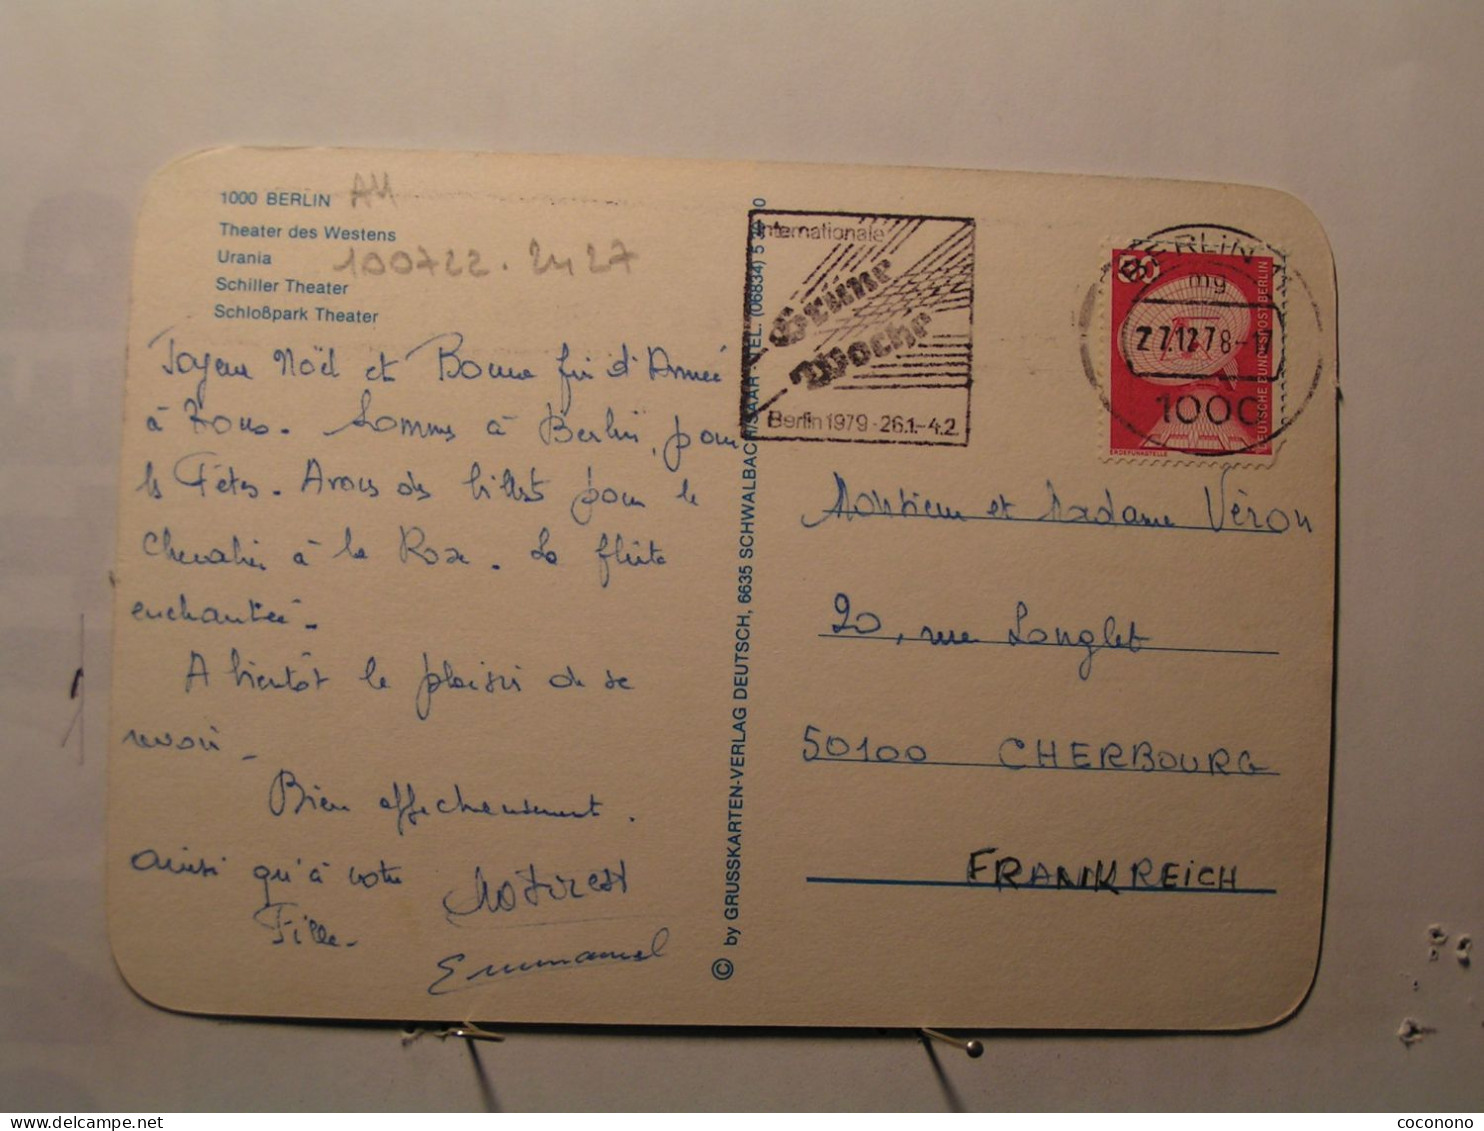 1000 BERLIN AM
Theater des Westens
Urania 100722. 2427
Schiller Theater
Schloßpark Theater
Joyeux Noël et Bonne fin d'Année
à Vous. Sommes à Berlin, pour
les Fêtes. Avons des billets pour le
Chevalier à la Rose. La flûte
enchantée.
A bientôt le plaisir de se
revoir.
Bien affectueusement.
ainsi qu'à votre
Fille.
Emmanuel
© by GRUSSKARTEN-VERLAG DEUTSCH, 6635 SCHWALBACH/SAAR TEL. (06834) 5
Internationale
Grüne
Woche
Berlin 1979 - 26.1.-4.2.
BERLIN 11
mg
27.12.78-17
1000
60
DEUTSCHE BUNDESPOST BERLIN
ERDEFUNKSTELLE
Monsieur et Madame Véron
20, rue Longlet
50100 CHERBOURG
FRANKREICH
coconono